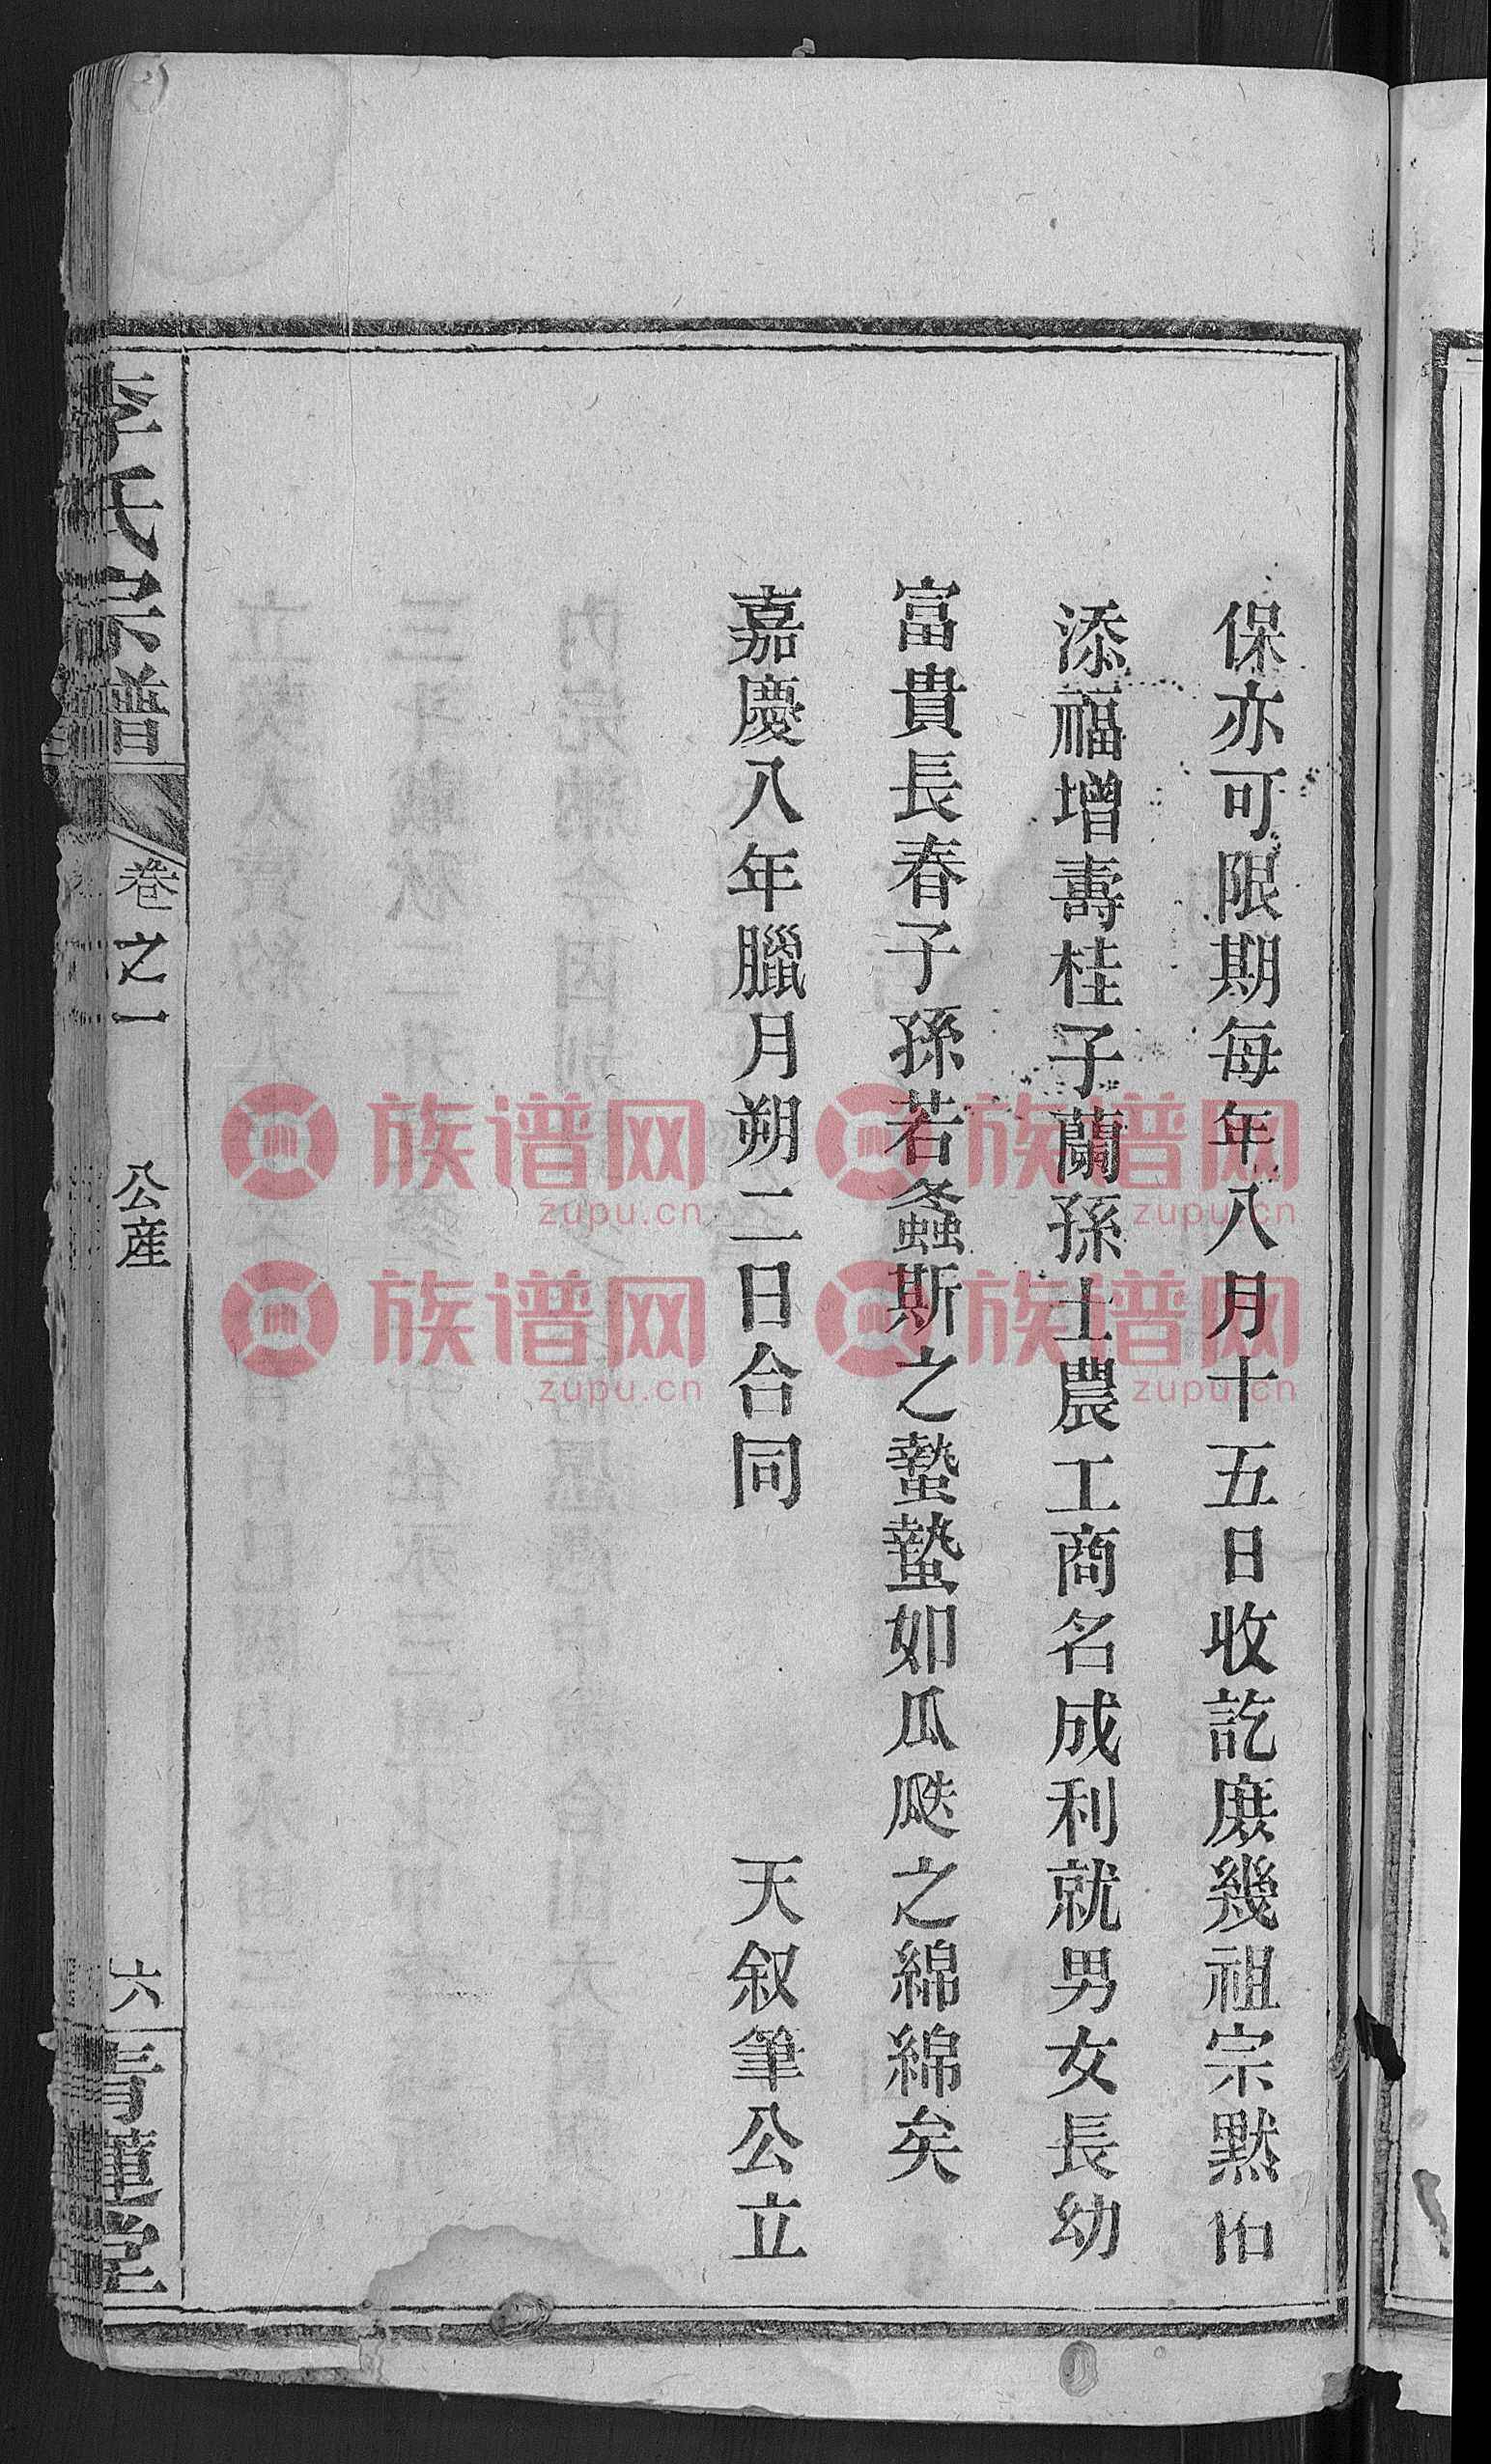 保亦可限期每年八月十五日收訖庶幾祖宗默佑
添福增壽桂子蘭孫士農工商名成利就男女長幼
富貴長春子孫若螽斯之蟄蟄如瓜瓞之綿綿矣
嘉慶八年臘月朔二日合同 天叙筆公立
李氏宗譜 卷之一 公産 六 青蓮堂
族谱网 族谱网
zupu.cn zupu.cn
族谱网 族谱网
zupu.cn zupu.cn